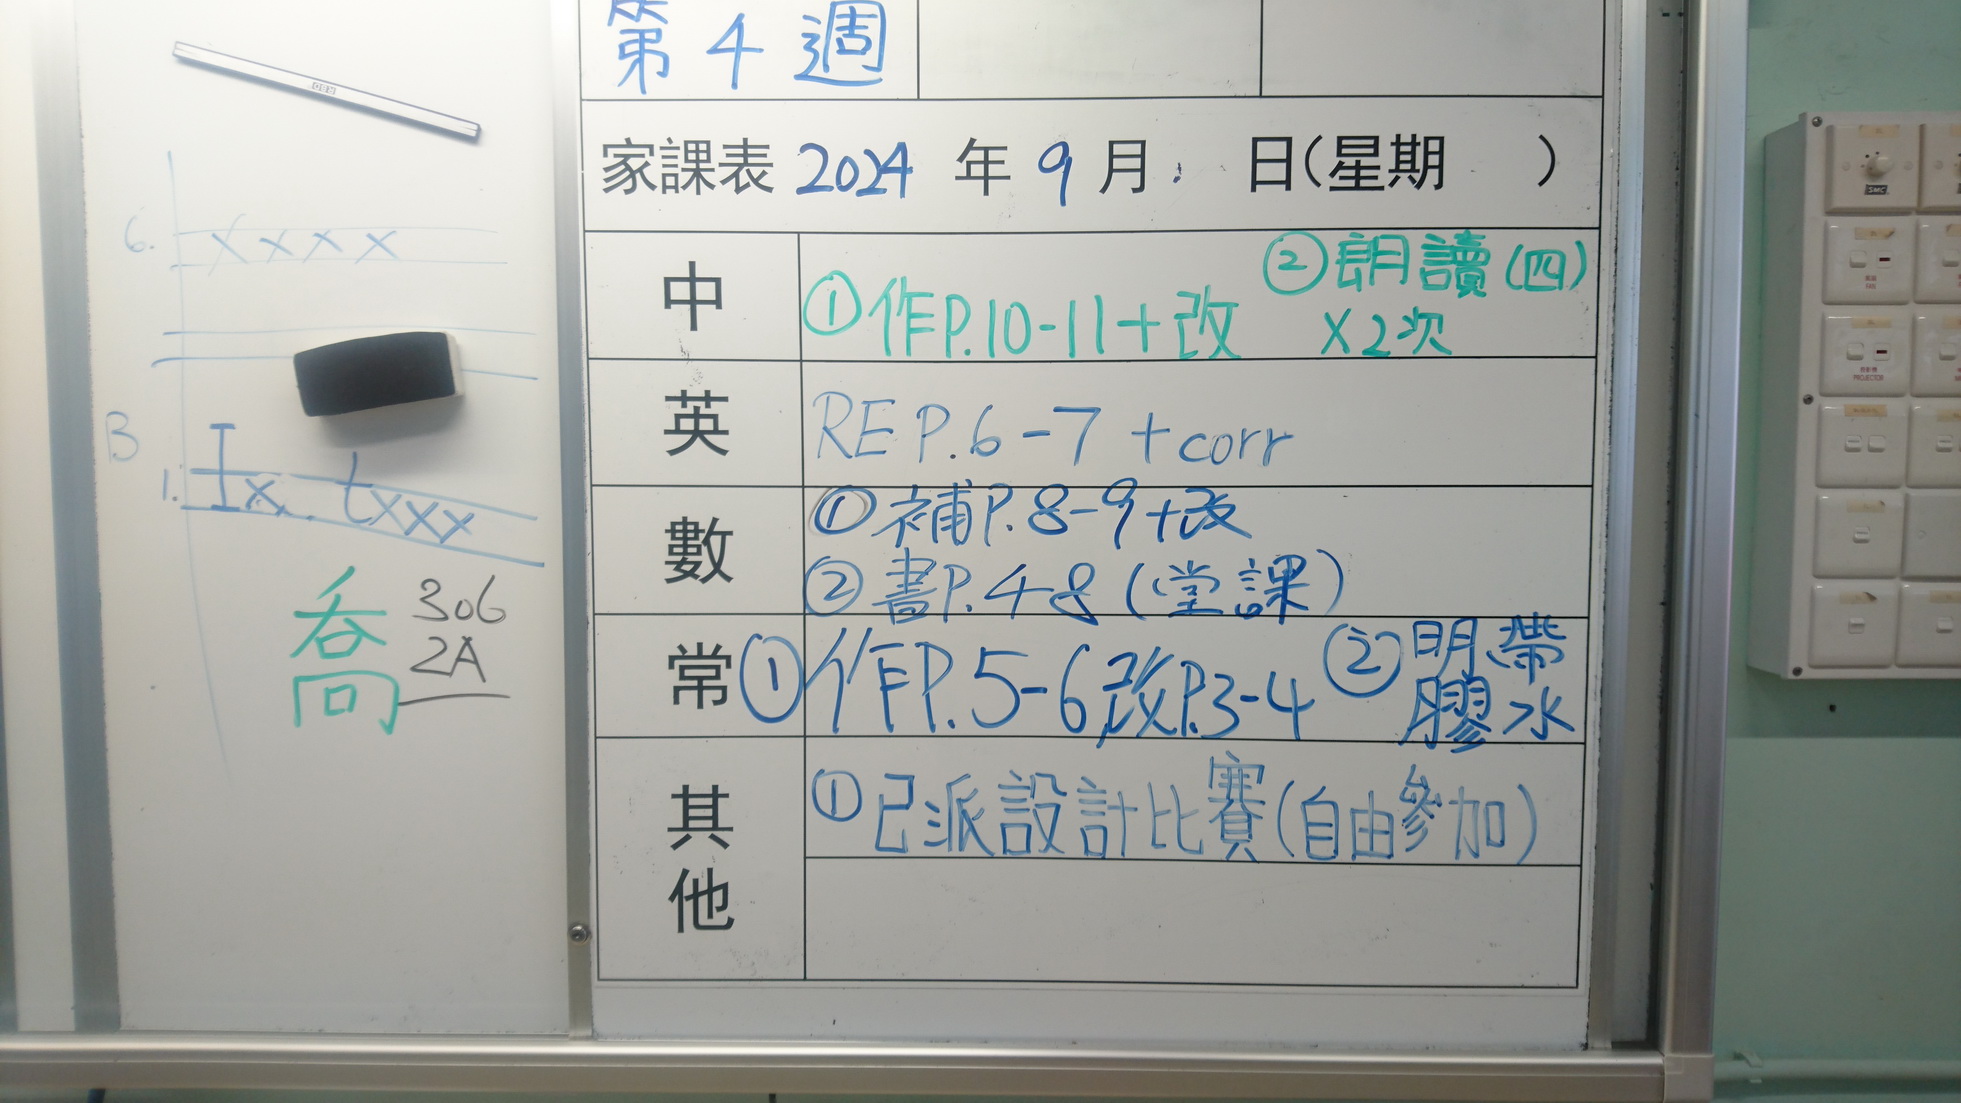 第4週
家課表 2024 年 9 月 日(星期 )
中
①作P.10-11+改
②朗讀(四)
X2次
英
REP.6-7 +corr
數
①補P.8-9+改
②書P.4-8(堂課)
常
①作P.5-6,改P.3-4
②明帶
膠水
其他
①已派設計比賽(自由參加)
6. XXXX
B
1. Ix. txxx
喬
306
2A
FAN
PROJECTOR